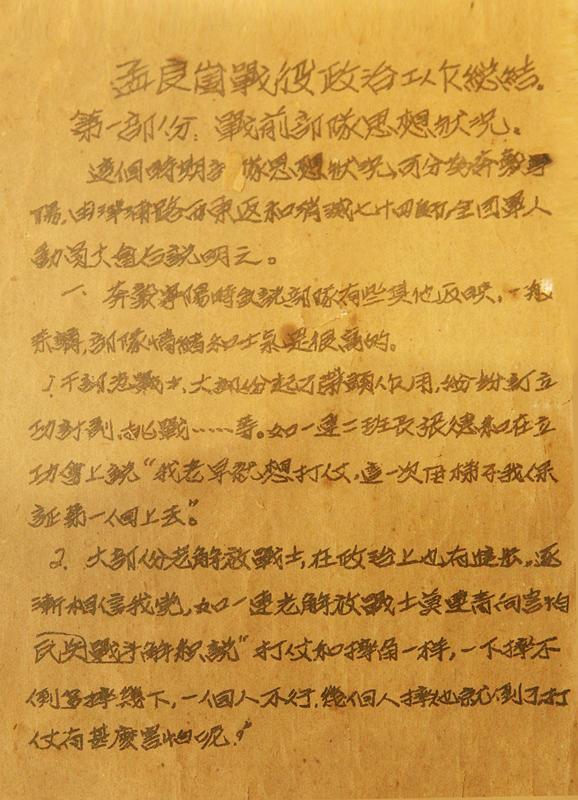 孟良崮戰役政治工作總結。
第一部份：戰前部隊思想狀況。
這個時期部隊思想狀況，可分為奔襲寧
陽，由津浦路向東返和消滅七十四師全團軍人
動員大會后說明之。
一、奔襲寧陽時雖說部隊有些其他反映，一般
來講，部隊情緒和士氣是很高的。
1.干部老戰士，大部份起了帶頭作用，紛紛訂立
功計劃挑戰……等。如一連二班長張德和在立
功會上說“我老早就想打仗，這一次用梯子我保
証第一個上去”。
2.大部份老解放戰士，在政治上也有進步，逐
漸相信我党，如一連老解放戰士莫連青向害怕
戰斗解釋說“打仗和摔角一样，一下摔不
倒多摔幾下，一個人不行，幾個人摔他就倒了打
仗有甚麼害怕呢！”